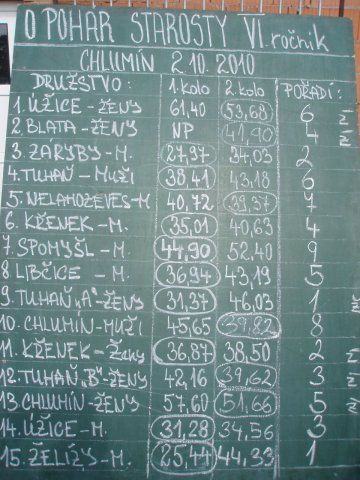 O POHÁR STAROSTY VI. ročník
CHLUMÍN 2.10.2010
DRUŽSTVO: 1.kolo 2.kolo POŘADÍ:
1. ÚŽICE - ŽENY 61,40 53,68 6 Ž
2. BLATA - ŽENY NP 41,90 4 Ž
3. ZÁRYBY - M. 27,97 34,03 2
4. TUHAŇ - MUŽI 38,41 43,18 6
5. NELAHOZEVES - M 40,72 39,37 7
6. KŘENEK - M. 35,01 40,63 4
7. SPOMYŠL - M. 44,90 52,40 9
8 LIBČICE - M. 36,94 43,19 5
9. TUHAŇ "A" - ŽENY 31,37 46,03 1 Ž
10. CHLUMÍN - MUŽI 45,65 39,82 8
11. KŘENEK - Ženy 36,87 38,50 2 Ž
12. TUHAŇ "B" - ŽENY 42,16 39,62 3 Ž
13 CHLUMÍN - ŽENY 57.60 51,66 5 Ž
14. ÚŽICE - M. 31,28 34,56 3
15. ŽELÍZY - M. 25,44 44,33 1